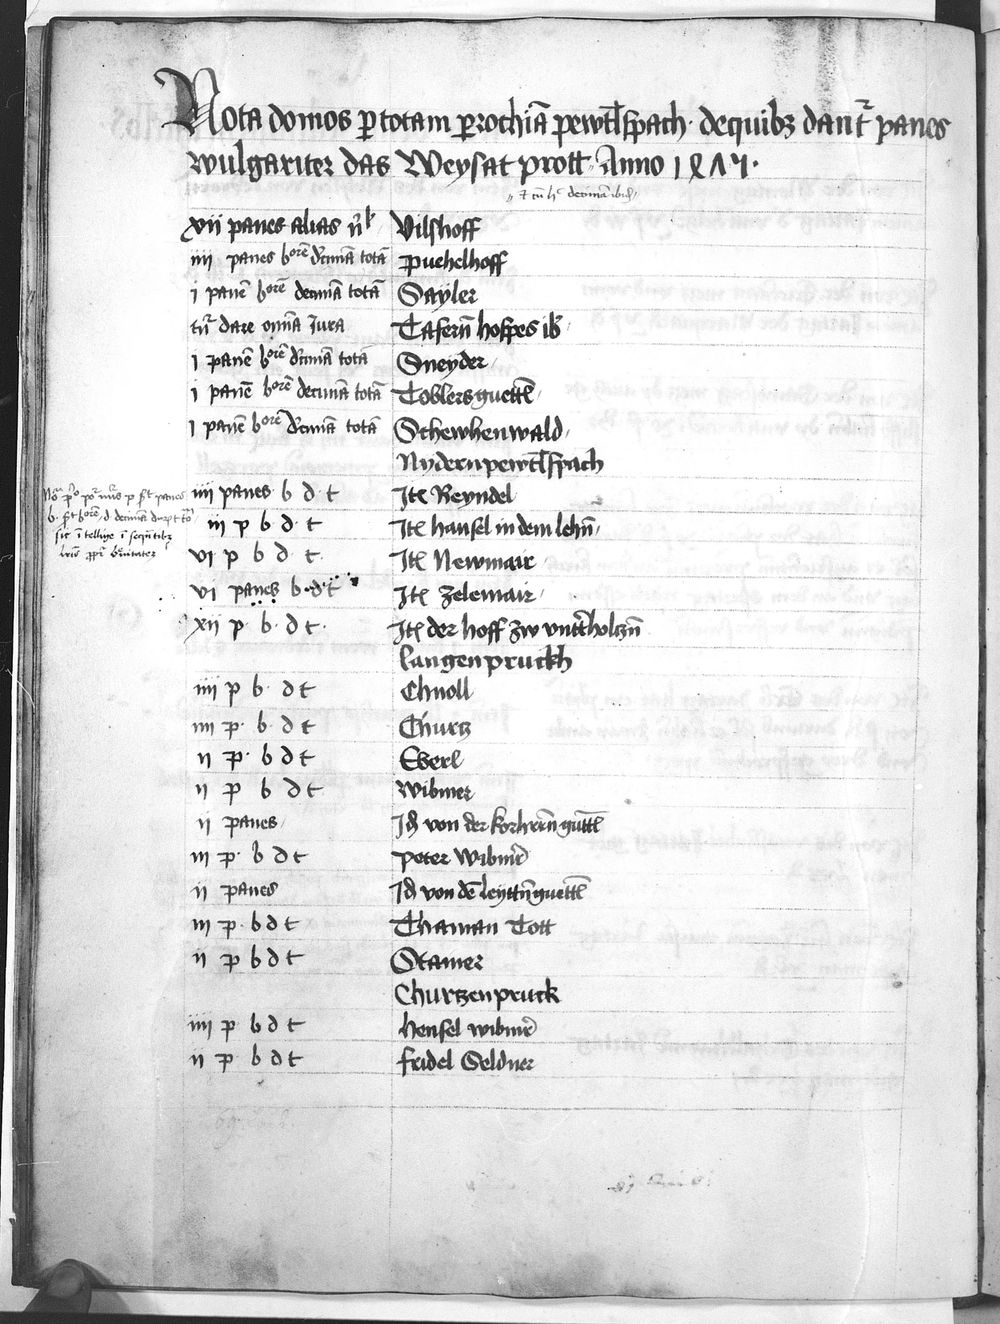 Nota domos p totam prochiā pewtlspach · de quibz dant᷑ panes
wulgariter das Weysat prott · Anno 1 8 Λ 7 ·
xii panes alias Vilshoff
iiii panes horē decimā totā Puehelhoff
i panē horē decimā totā Sayler
dare omnia Jura Tafern hospes ib
i panē horē decimā totā Sneyder
i panē horē decimā totā Toblersguettl
i panē horē decimā totā Schewhenwald
Nydernpewtlspach
iiii panes b d t Jt Reyndel
iii p b d t Jt hansel in dem lehn
vi p b d t Jt Newmair
vi panes b d t Jt Zelemair
xii p b d t Jt der hoff zw vnterholtzn
langenpruckh
iiii p b d t Chnoll
iiii p b d t Churtz
ii p b d t Eberl
ii p b d t Wibmer
ii panes Jd von der korherrn guttl
iii p b d t peter Wibmer
ii panes Jd von dē leyttn guettl
iii p b d t Thaman Tott
ii p b d t Stamer
Churtzenpruck
iiii p b d t hensel wibmer
ii p b d t fridel Seldner